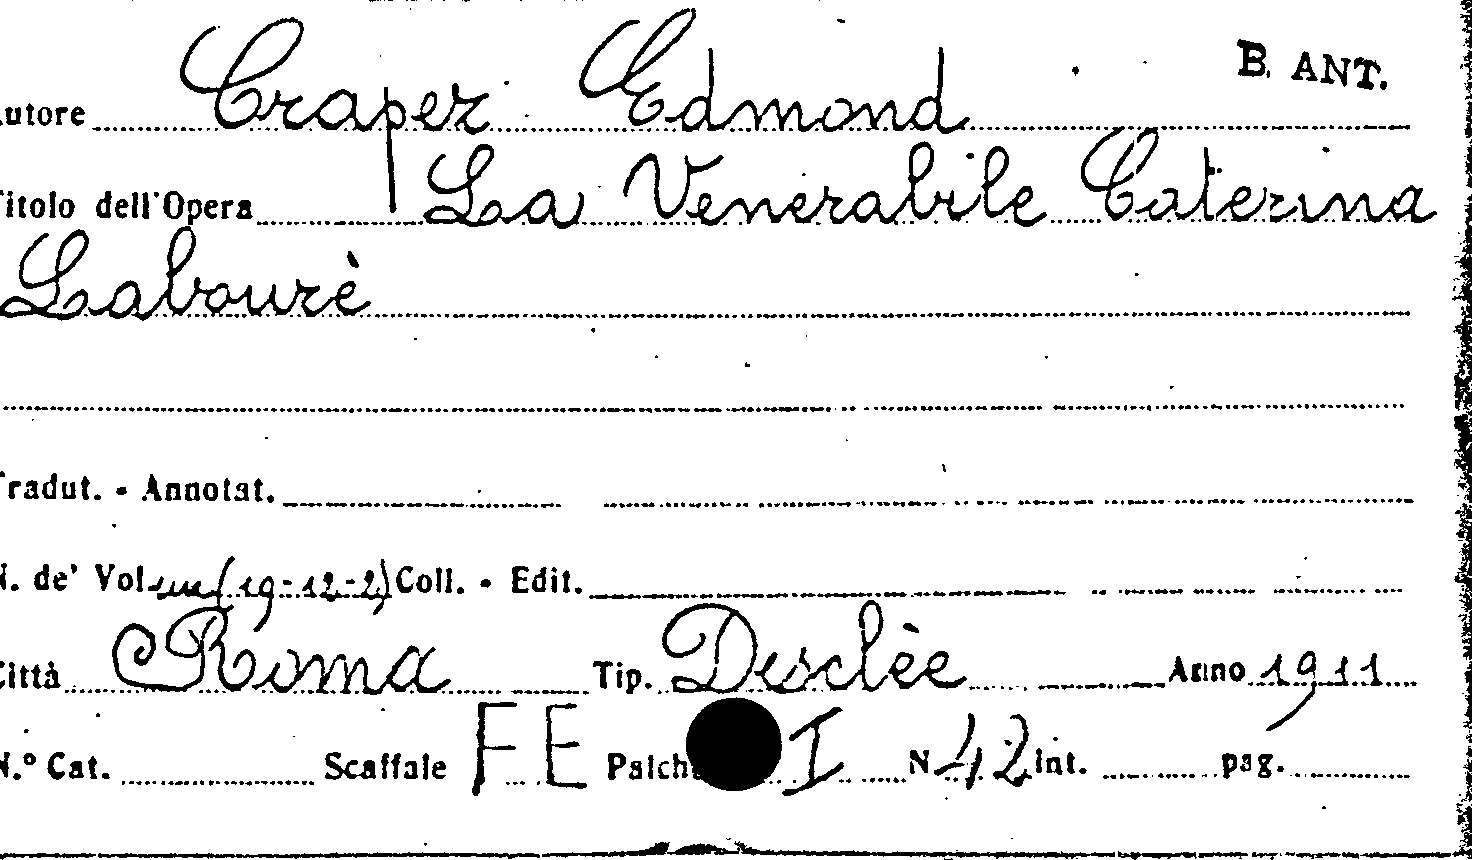 B. ANT.
utore Crapez Edmond
itolo dell'Opera La Venerabile Caterina
Labourè
radut. - Annotat.
N. de' Vol. (19-12-2) Coll. - Edit.
Città Roma Tip. Desclèe Anno 1911
N.º Cat. Scaffale FE Palch I N 42 Int. pag.